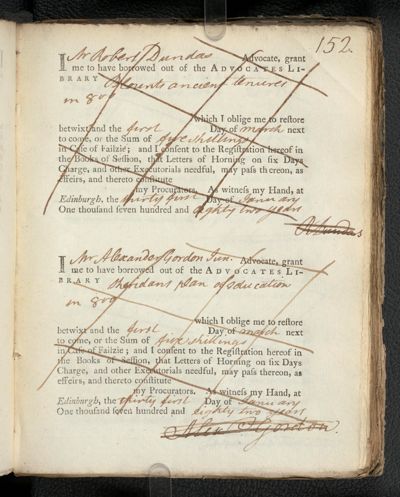 152.
I Mr Robert Dundas Advocate, grant
me to have borrowed out of the ADVOCATES LI-
BRARY Blounts ancient tenures
in 8vo
which I oblige me to reſtore
betwixt and the first Day of march next
to come, or the Sum of five shillings
in Caſe of Failzie; and I conſent to the Regiſtration hereof in
the Books of Seſſion, that Letters of Horning on ſix Days
Charge, and other Executorials needful, may paſs thereon, as
effeirs, and thereto conſtitute
my Procurators. As witneſs my Hand, at
Edinburgh, the thirty first Day of January
One thouſand ſeven hundred and eighty two years
R Dundas
I Mr Alexander Gordon Jun. Advocate, grant
me to have borrowed out of the ADVOCATES LI-
BRARY Sheridans plan of education
in 8vo
which I oblige me to reſtore
betwixt and the first Day of march next
to come, or the Sum of five shillings
in Caſe of Failzie; and I conſent to the Regiſtration hereof in
the Books of Seſſion, that Letters of Horning on ſix Days
Charge, and other Executorials needful, may paſs thereon, as
effeirs, and thereto conſtitute
my Procurators. As witneſs my Hand, at
Edinburgh, the thirty first Day of January
One thouſand ſeven hundred and eighty two years
Alexr Gordon.